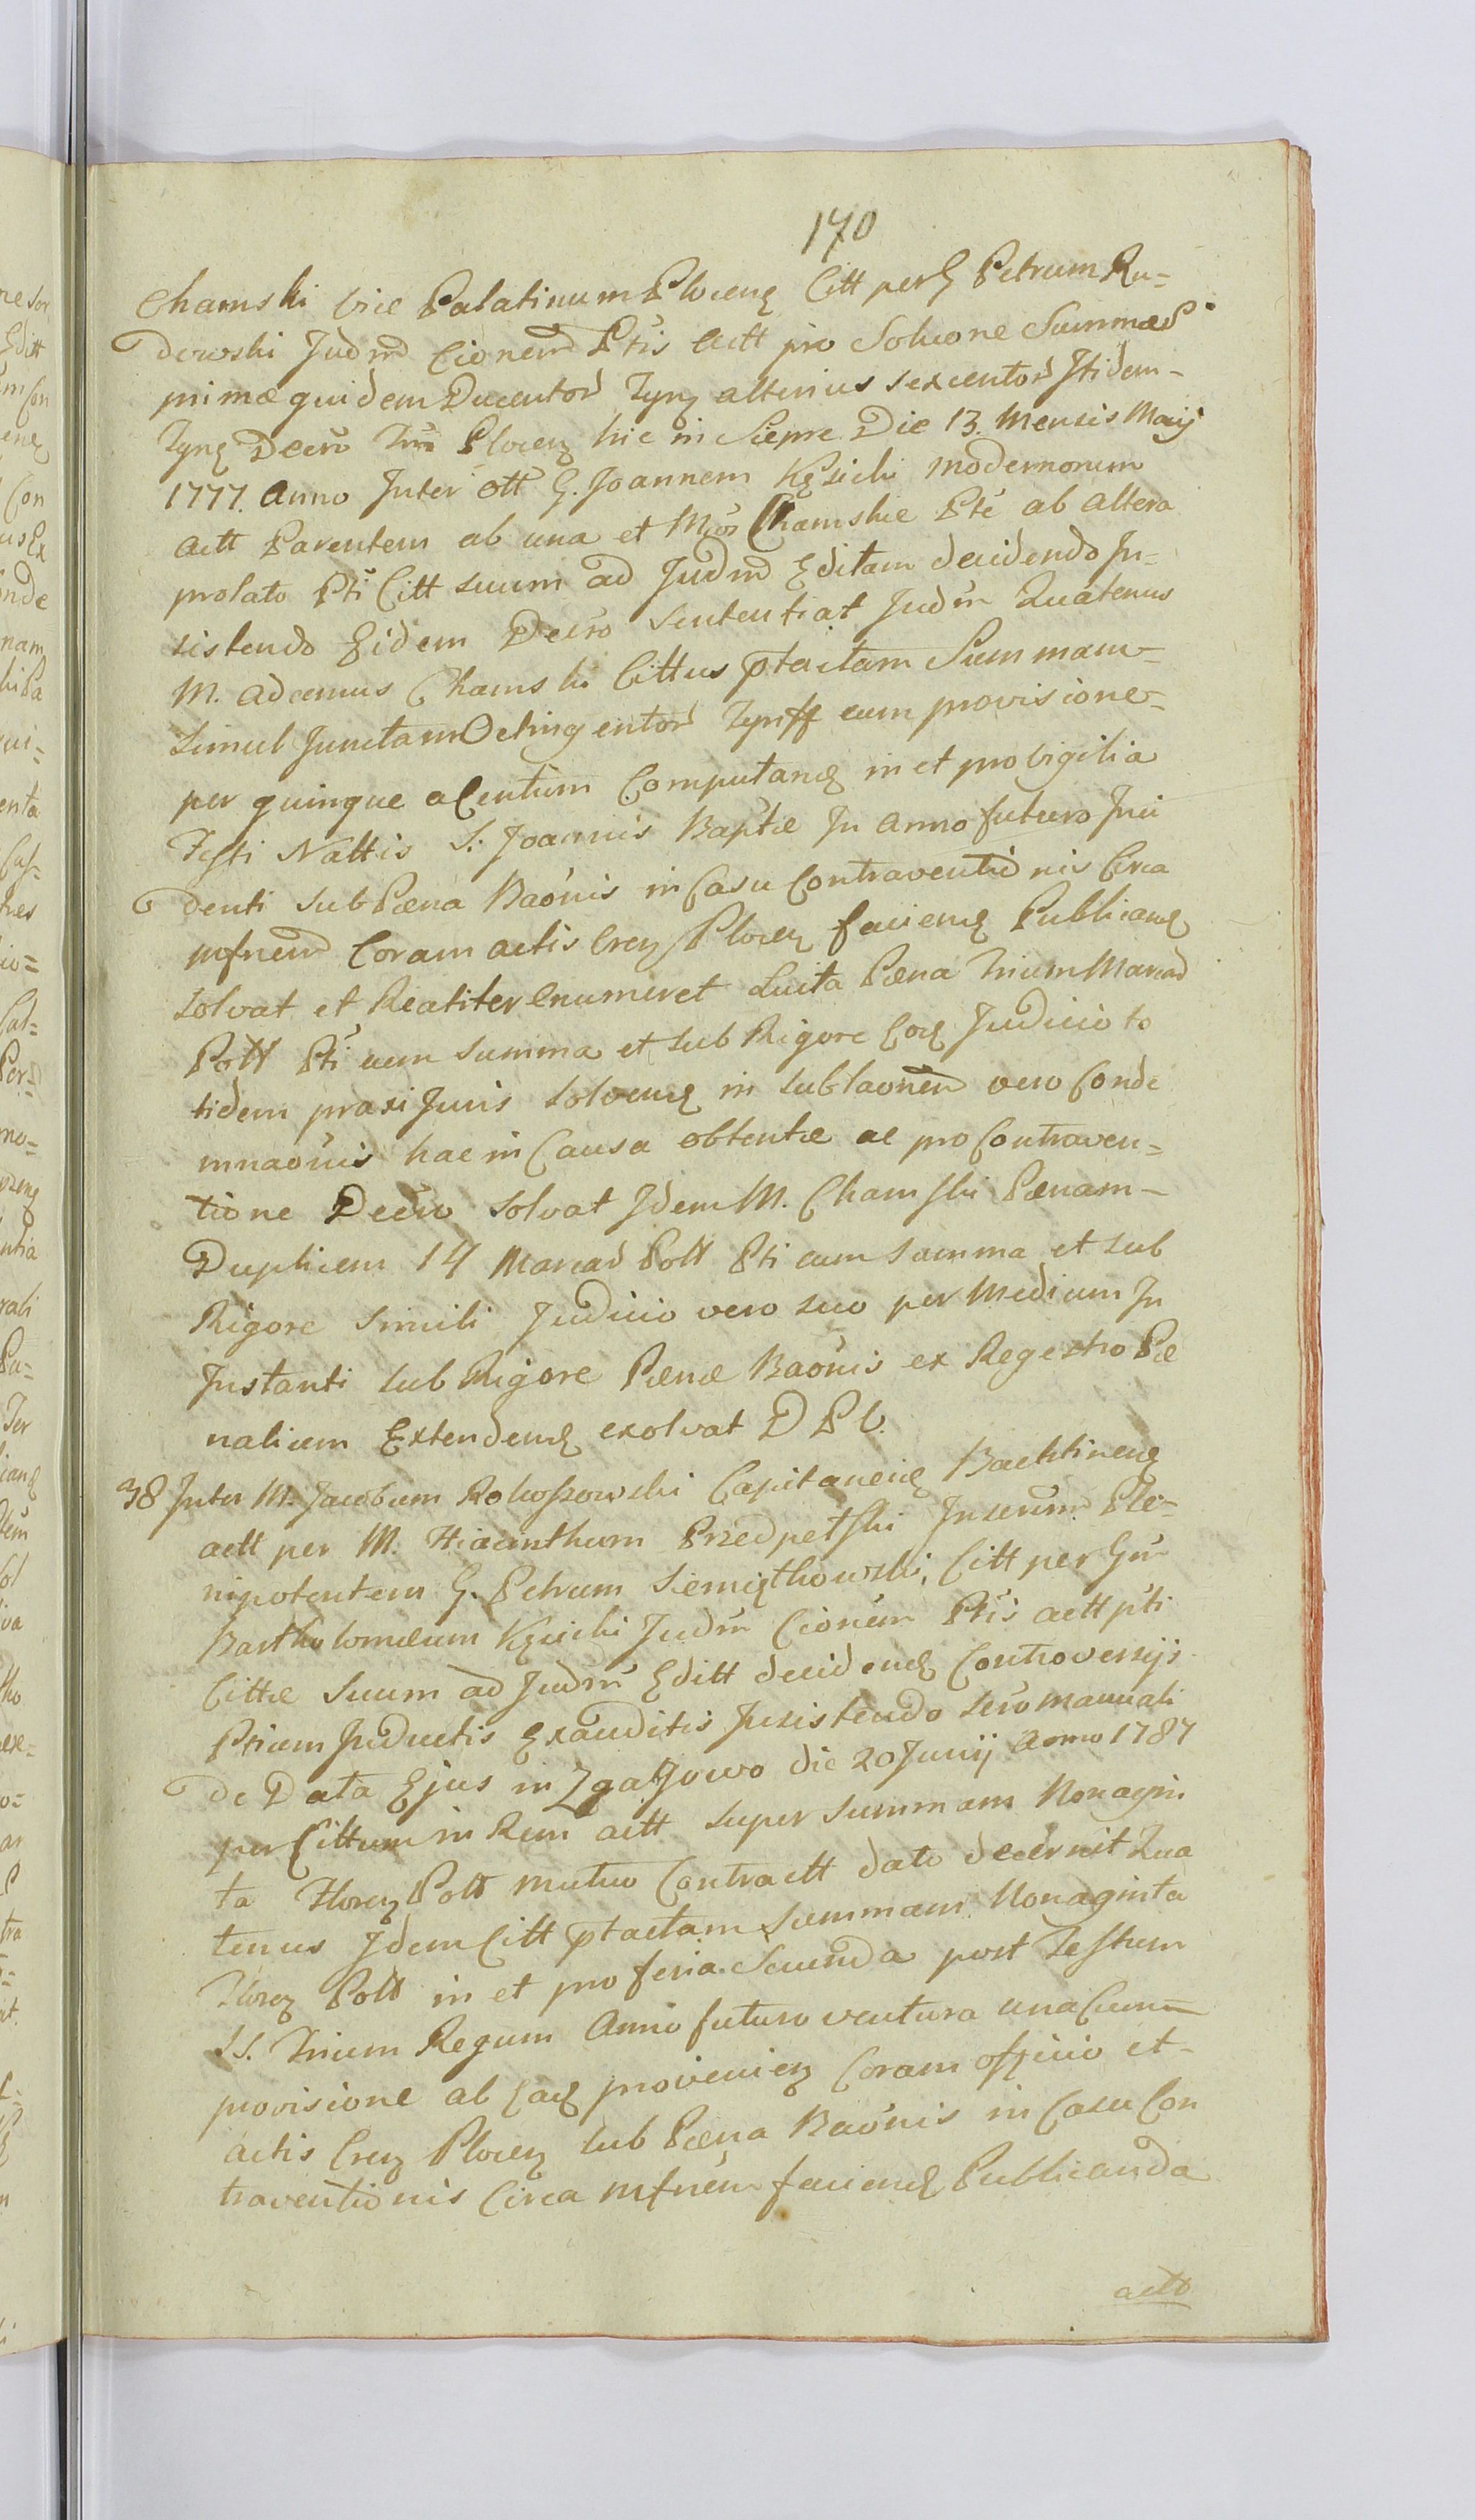 170
Chamski Vice Palatinum Plocenq Citt per G Petrum Ru-
dowski Judm Cionem Ptis Actt pro Solucone Summae
primae quidem Ducentor Tynf alterius sexcentor Itidem-
Tynf Decro Plocen hic in Sierpre Die 13. Mensis Maij
1777. Anno Inter Ott G. Joannem Kęsicki modernorum
actt Parentem ab una et Mcos Chamskie Pte ab altera
prolato Pti Citt suum ad Judm Editam decidendo In-
sistendo Eidem Decro Sententiat Judm Quatenus
M. Adamus Chamski Cittus ptactam Summam-
Simul Junctam Octingentor Tynff cum provisione-
per quinque a Centum Computanq in et pro Vigilia
Festi Nattis S. Joannis Baptae In Anno futuro Inci
denti sub Paena Baonis in Casu Contraventionis Circa
mfnem Coram actis Cren Plocen facienq Publicanq
solvat et Realiter enumeret Luita Paena Trium Marcar
Poll Pti cum summa et sub Rigore Eoq Judicio to
tidem praxi Juris solvenq in sublaonem vero Conde
mnaonis hac in Causa obtentae ac pro Contraven=
tione Decro solvat Idem M. Chamski Paenam-
Duplicem 14 Marcar Poll Pti cum Summa et sub
Rigore Simili Judicio vero suo per Medium In
Instanti sub Rigore Paenae Baonis ex Regestro Pae
nalium Extendenq exolvat D P V.
38 Inter M. Jacobum Rokossowski Capitaneiq Bachtinenq
actt per M. Hiacinthum Przedpełski Inserum Ple-
nipotentem G. Petrum Siemiątkowski, Citt per Gm
Bartholomaeum Kęsicki Judm Cionem Ptis actt pti
Cittae Suum ad Judm Editt decidenq Controversijs
Ptium Inductis Exauditis Insistendo Scro manuali
de Data Ejus in Zgałowo die 20 Junij Anno 1787
per Cittum in Rem actt super Summam Nonagin
ta Floren Poll mutuo Contractt dato decernit Qua
tenus Idem Citt ptactam Summam Nonaginta
Floren Poll in et pro feria Secunda post Festum
SS. Trium Regum Anno futuro ventura una Cum
provisione ab Eaq provenien Coram officio et-
actis Cren Plocen sub Paena Baonis in Casu Con
traventionis Circa mfnem facienq Publicanda
acto